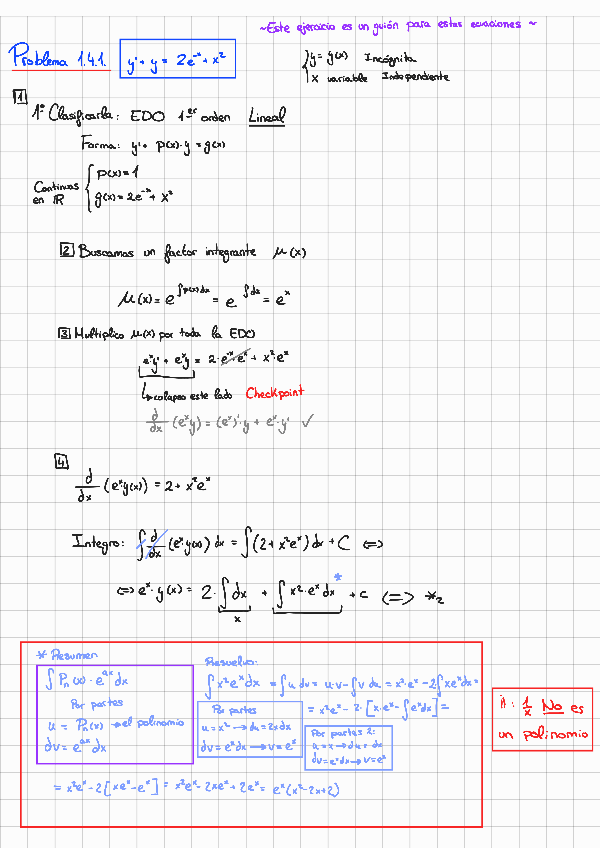 ~Este ejercicio es un guión para estas ecuaciones ~
Problema 1.4.1. y' + y = 2e^-x + x²
{ y = y(x) Incógnita
x variable Independiente
1
1º Clasificarla: EDO 1er orden Lineal
Forma: y' + p(x)·y = g(x)
Continuas en ℝ { p(x) = 1
g(x) = 2e^-x + x²
2 Buscamos un factor integrante μ(x)
μ(x) = e^∫p(x)dx = e^∫dx = e^x
3 Multiplico μ(x) por toda la EDO
e^x y' + e^x y = 2·e^-x·e^x + x²·e^x
↳ colapso este lado Checkpoint
d/dx (e^x y) = (e^x)'·y + e^x·y' ✓
4
d/dx (e^x·y(x)) = 2 + x²e^x
Integro: ∫ d/dx (e^x·y(x)) dx = ∫(2 + x²e^x) dx + C ⟺
⟺ e^x·y(x) = 2·∫dx + ∫x²·e^x dx * + C ⟺ *₂
x
* Resumen
∫Pn(x)·e^ax dx
Por partes
u = Pn(x) → el polinomio
dv = e^ax dx
Resuelvo:
∫x²e^x dx = ∫u dv = u·v - ∫v du = x²·e^x - 2∫xe^x dx =
Por partes
u = x² → du = 2xdx
dv = e^x dx → v = e^x
= x²e^x - 2·[x·e^x - ∫e^x dx] =
Por partes 2:
u = x → du = dx
dv = e^x dx → v = e^x
= x²e^x - 2[xe^x - e^x] = x²e^x - 2xe^x + 2e^x = e^x(x² - 2x + 2)
¡!: 1/x No es
un polinomio